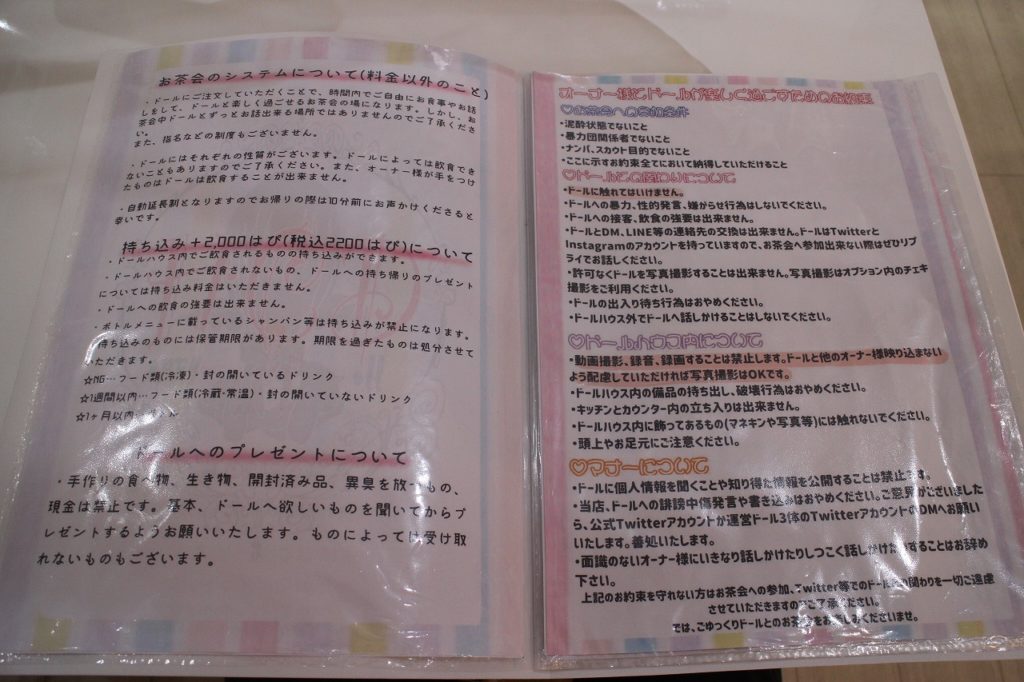 お茶会のシステムについて(料金以外のこと)
・ドールにご注文していただくことで、時間内でご自由にお食事やお話
しをして、ドールと楽しく過ごせるお茶会の場になります。しかし、お
茶会中ドールとずっとお話出来る場所ではありませんのでご了承くださ
い。
また、指名などの制度もございません。
・ドールにはそれぞれの性質がございます。ドールによっては飲食でき
ないこともありますのでご了承ください。また、オーナー様が手をつけ
たものはドールは飲食することが出来ません。
・自動延長制となりますのでお帰りの際は10分前にお声かけくださると
幸いです。
持ち込み+2,000はぴ(税込2200はぴ)について
・ドールハウス内でご飲食されるものの持ち込みができます。
・ドールハウス内でご飲食されないもの、ドールへの持ち帰りのプレゼント
については持ち込み料金はいただきません。
・ドールへの飲食の強要は出来ません。
・ボトルメニューに載っているシャンパン等は持ち込みが禁止になります。
持ち込みのものには保管期限があります。期限を過ぎたものは処分させて
いただきます。
☆NG…フード類(冷凍)・封の開いているドリンク
☆1週間以内…フード類(冷蔵・常温)・封の開いていないドリンク
☆1ヶ月以内
ドールへのプレゼントについて
・手作りの食べ物、生き物、開封済み品、異臭を放つもの、
現金は禁止です。基本、ドールへ欲しいものを聞いてからプ
レゼントするようお願いいたします。ものによっては受け取
れないものもございます。
オーナー様にドールが楽しく過ごすためのお約束
♡お茶会への参加条件
・泥酔状態でないこと
・暴力団関係者でないこと
・ナンパ、スカウト目的でないこと
・ここに示すお約束全てにおいて納得していただけること
♡ドールとの関わりについて
・ドールに触れてはいけません。
・ドールへの暴力、性的発言、嫌がらせ行為はしないでください。
・ドールへの接客、飲食の強要は出来ません。
・ドールとDM、LINE等の連絡先の交換は出来ません。ドールはTwitterと
Instagramのアカウントを持っていますので、お茶会へ参加出来ない際はぜひリプ
ライでお話しください。
・許可なくドールを写真撮影することは出来ません。写真撮影はオプション内のチェキ
撮影をご利用ください。
・ドールの出入り待ち行為はおやめください。
・ドールハウス外でドールへ話しかけることはしないでください。
♡ドールハウス内について
・動画撮影、録音、録画することは禁止します。ドールと他のオーナー様映り込まない
よう配慮していただければ写真撮影はOKです。
・ドールハウス内の備品の持ち出し、破壊行為はおやめください。
・キッチンとカウンター内の立ち入りは出来ません。
・ドールハウス内に飾ってあるもの(マネキンや写真等)には触れないでください。
・頭上やお足元にご注意ください。
♡マナーについて
・ドールに個人情報を聞くことや知り得た情報を公開することは禁止ます。
・当店、ドールへの誹謗中傷発言や書き込みはおやめください。ご意見がございました
ら、公式Twitterアカウントか運営ドール3体のTwitterアカウントのDMへお願い
いたします。善処いたします。
・面識のないオーナー様にいきなり話しかけたりしつこく話しかけたりすることはお辞め
下さい。
上記のお約束を守れない方はお茶会への参加、Twitter等でのドールとの関わりを一切ご遠慮
させていただきますのでご了承ください。
では、ごゆっくりドールとのお茶会をお楽しみくださいませ。